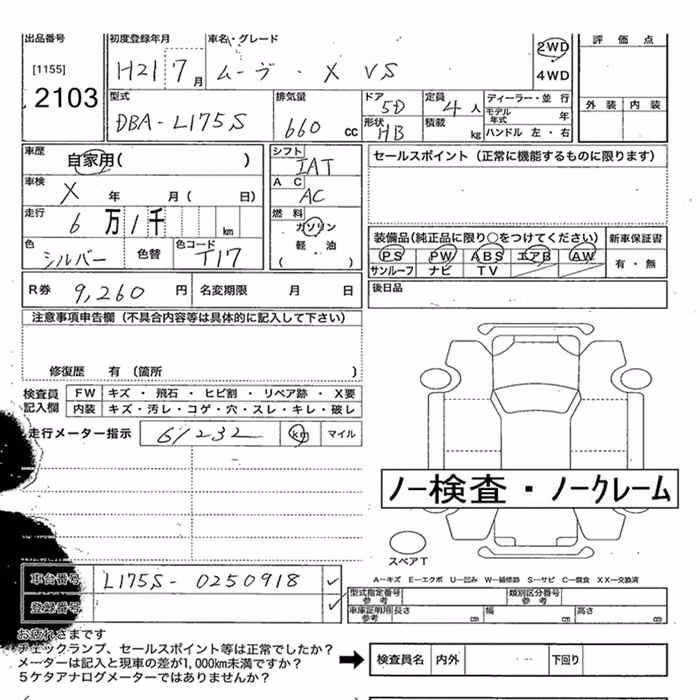 出品番号 初度登録年月 車名・グレード 評価点
[1155] H21 7月 ムーヴ・X VS 2WD
4WD
2103 型式 排気量 ドア 定員 ディーラー・並行 外装 内装
DBA-L175S 660cc 5D 4人 モデル年式 年
形状 HB 積載 kg ハンドル 左・右
車歴 自家用( ) シフト IAT セールスポイント(正常に機能するものに限ります)
車検 X 年 月( 日) AC AC
走行 6万1千 km 燃料 ガソリン
軽油
( )
装備品(純正品に限り○をつけてください) 新車保証書
色 シルバー 色替 色コード T17 PS PW ABS エアB AW 有・無
サンルーフ ナビ TV
R券 9,260円 名変期限 月 日 後日品
注意事項申告欄(不具合内容等は具体的に記入して下さい)
修復歴 有(箇所 )
検査員記入欄 FW キズ・飛石・ヒビ割・リペア跡・X要
内装 キズ・汚レ・コゲ・穴・スレ・キレ・破レ
走行メーター指示 61232 km マイル
ノー検査・ノークレーム
スペアT
A-キズ E-エクボ U-凹み W-補修跡 S-サビ C-腐食 XX-交換済
車台番号 L175S-0250918 ✓
登録番号 ✓
型式指定番号 参考 類別区分番号 参考
車庫証明用 参考 長さ cm 幅 cm 高さ cm
お疲れさまです
チェックランプ、セールスポイント等は正常でしたか?
メーターは記入と現車の差が1,000km未満ですか?
5ケタアナログメーターではありませんか?
➡ 検査員名 内外 下回り